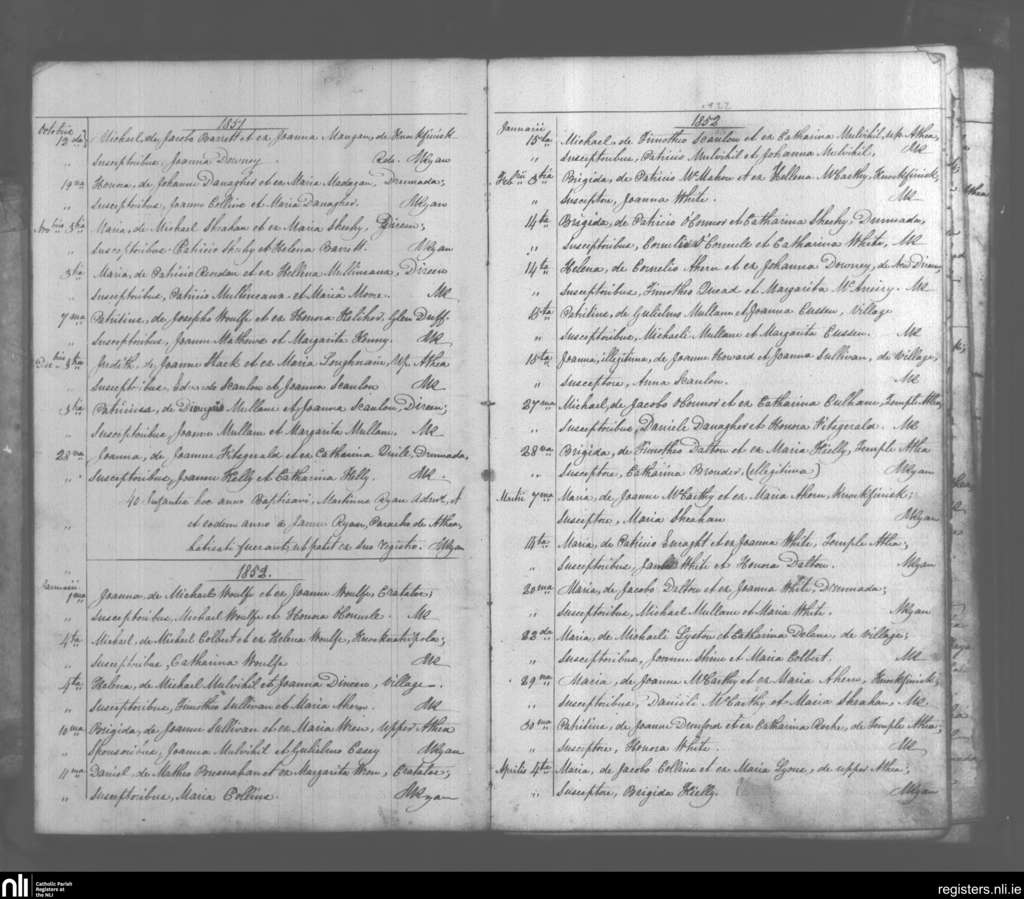 1851
Octobris 12da Michael, de Jacobo Barrett et ex Joanna Mangan, de Knockfinisk
" Susceptoribus, Joanna Downey. MRyan
19na Honora, de Johanne Danagher et ex Maria Madegan, Dromada;
" Susceptoribus, Joanne Collins et Maria Danagher. MRyan
Novbris Maria, de Michael Strahan et ex Maria Sheehy, Direen;
" Susceptoribus Patricio Sheehy et Helena Barrett. MRyan
Maria, de Patricio Reredan et ex Hellena Mullineana, Direen
" Susceptoribus, Patricio Mullineana et Maria Moore. MR
7ma Patritius, de Josepho Woulfe et ex Honora Glin Duff.
" Susceptoribus, Joanne Mathews et Margarita Kenny. MR
Decbris Judith, de Joanne Stack et ex Maria Loughnan, Up. Athea
" Susceptoribus, Scanlon et Joanna Scanlon MR
Patricius, de Mullane et Joanna Scanlon, Direen;
" Susceptoribus Joanne Mullane et Margarita Mullane. MR
28va Joanna, de Joanne Fitzgerald et ex Catharina Dromada,
" Susceptoribus, Joanne Kelly et Catharina Kelly. MR.
40 Infantes hoc anno Baptizavi, Martinus Ryan Adm. et
" et eodem anno a Jacobo Ryan, Parocho de Athea,
batizati fuerant, ut patet ex suo registro. MRyan
1852.
Januarii 1ma Joanna, de Michael Woulfe et ex Joanna Woulfe, Cratatas;
" Susceptoribus, Michael Woulfe et Honora MR
4ta Michael, de Michael Colbert et ex Helena Woulfe,
" Susceptoribus, Catharina Woulfe MR
4ta Helena, de Michael Mulvihil et Joanna Direen, Village.
" Susceptoribus, Timotheo Sullivan et Maria Ahern. MR
10ma Brigida, de Joanne Sullivan et ex Maria Wren, Upper Athea
" Sponsoribus, Joanna Mulvihil et Gulielmo Casey MRyan
11ma Daniel, de Matheo Bresnahan et ex Margarita Wren, Cratatas;
" Susceptoribus, Maria Collins. MRyan
1852
Januarii 15ta Michael, de Timotheo Scanlon et ex Catharina Mulvihil, Up. Athea,
" Susceptoribus, Patricio Mulvihil et Johanna Mulvihil, MR
Febrii 3tia Brigida, de Patricio McMahon et ex Hellena McCarthy, Knockfinisk;
" Susceptore, Joanna White. MR
14ta Brigida, de Patricio OConnor et Catharina Sheehy, Dromada,
" Susceptoribus, Cornelio et Catharina White, MR
14ta Helena, de Cornelio Ahern et ex Johanna Downey, de New Direen,
" Susceptoribus, Timotheo Quead et Margarita MR
15ta Patritius, de Gulielmo Mullane et Joanna Cussen, Village
" Susceptoribus, Michaeli Mullane et Margarita Cussen. MR
15ta Joanna, illegitima, de Joanne Howard et Joanna Sullivan, de Village,
" Susceptore, Anna Scanlon. MR
27ma Michael, de Jacobo OConnor et ex Catharina Culhane, Temple Athea,
" Susceptoribus, Daniele Danagher et Honora Fitzgerald. MR
28va Brigida, de Timotheo Dalton et ex Maria Kielly, Temple Athea
" Susceptore, Catharina Brouder, (illegitima) MRyan
Martii 7ma Maria, de Joanne McCarthy et ex Maria Ahern, Knockfinisk;
Susceptore, Maria Sheahan MRyan
14ta Maria, de Patricio Enraght et ex Joanna White, Temple Athea;
" Susceptoribus, White et Honora Dalton. MRyan
20ma Maria, de Jacobo Dalton et ex Joanna White, Dromada;
" Susceptoribus, Michael Mullane et Maria White. MRyan
22da Maria, de Michaeli Lyston et Catharina Delane, de Village;
" Susceptoribus, Joanne Shine et Maria Colbert. MR
29na Maria, de Joanne McCarthy et ex Maria Ahern, Knockfinisk;
" Susceptoribus, Danieli McCarthy et Maria Sheahan, MR
30ma Patritius, de Joanne Danford et ex Catharina Roche, de Temple Athea;
" Susceptore, Honora White. MR
Aprilis 4ta Maria, de Jacobo Collins et ex Maria Lyons, de upper Athea;
" Susceptore, Brigida Kielly. MRyan
nli
Catholic Parish
Registers at
the NLI
registers.nli.ie